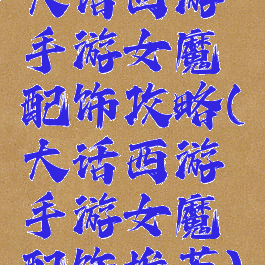 大话西游
手游女魔
配饰攻略(
大话西游
手游女魔
配饰推荐)